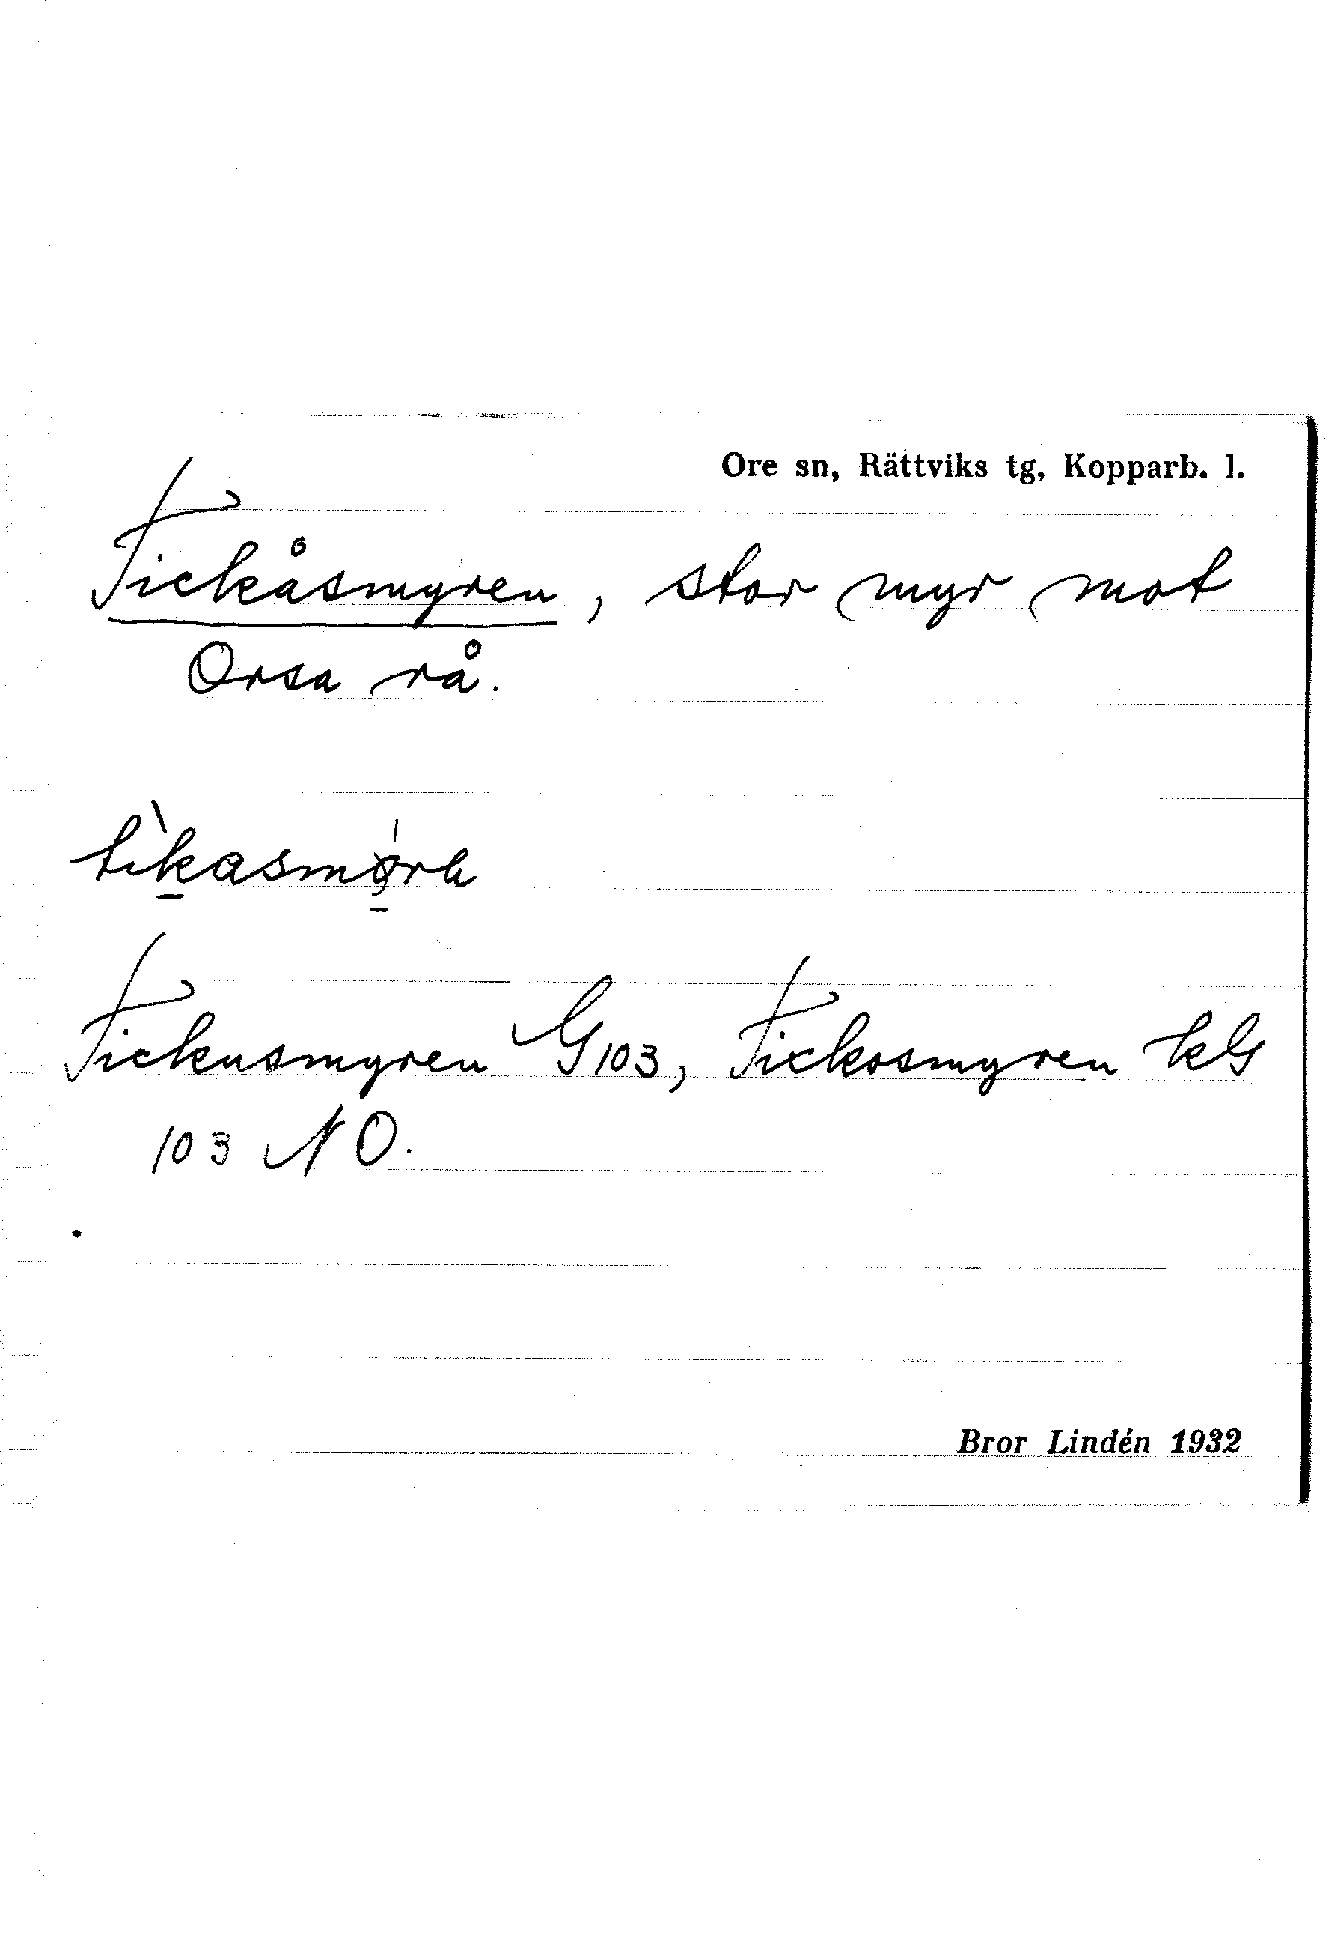 Ore sn, Rättviks tg, Kopparb. l.
Tickåsmyren, stor myr mot
Orsa rå.
Tickusmyren G103, Tickosmyren kG
103 NO.
Bror Lindén 1932